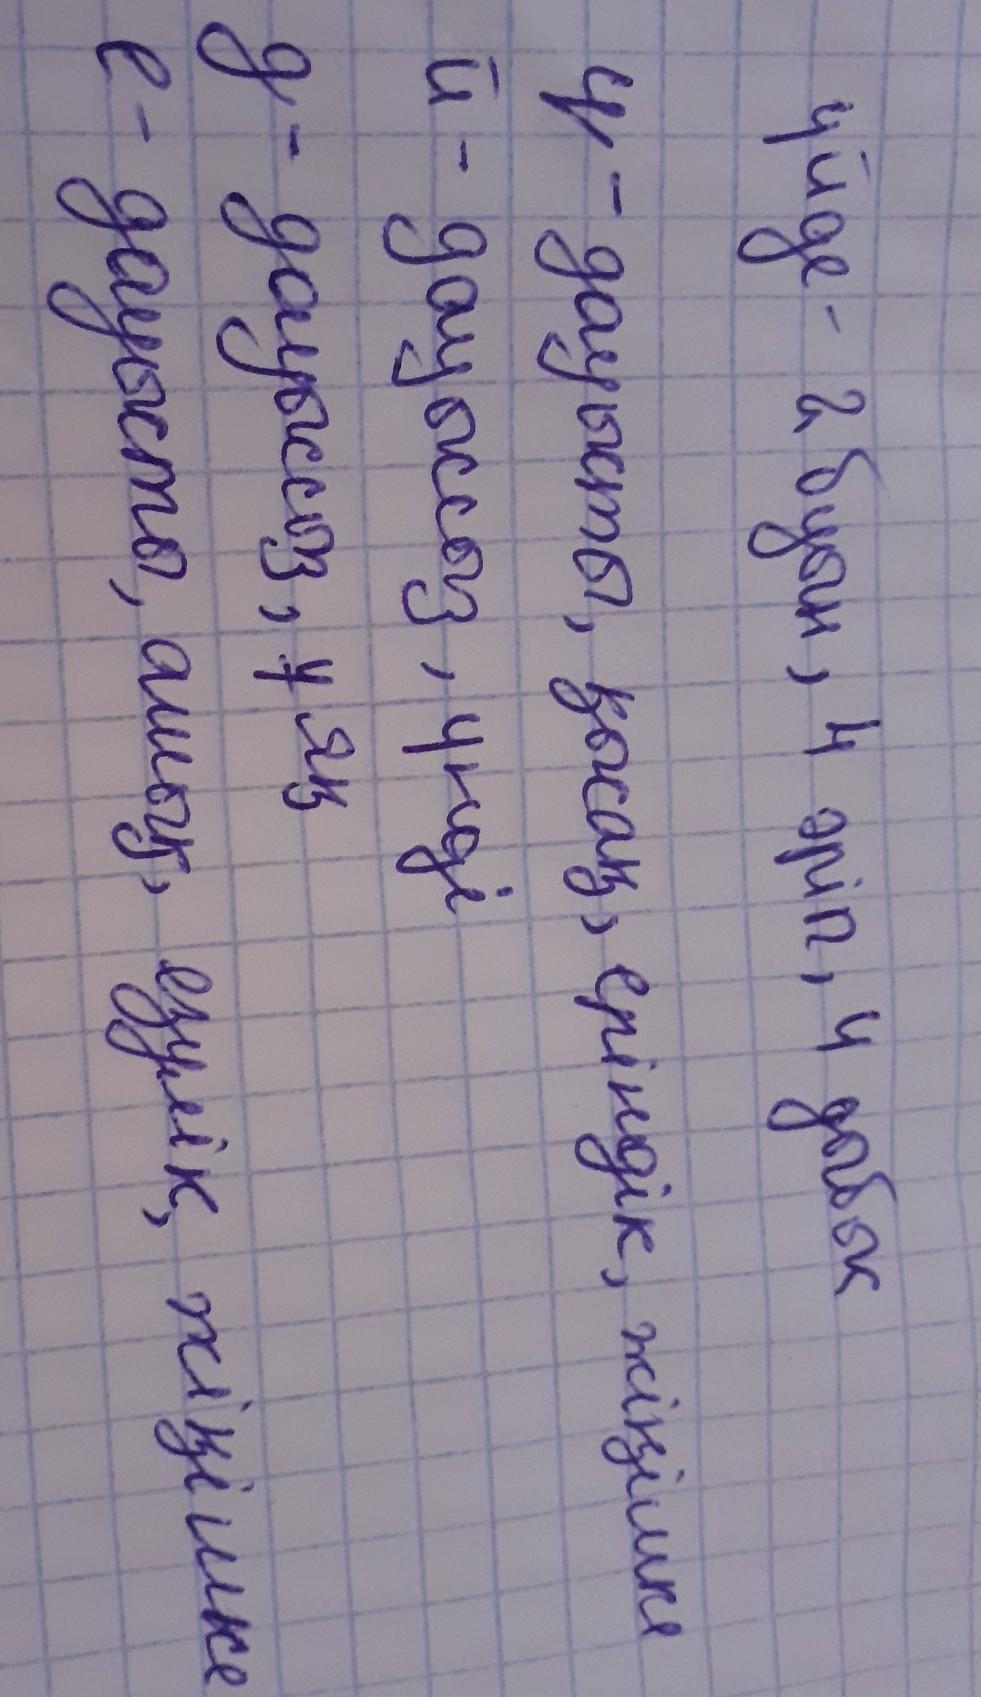 үйде- 2 буын, 4 әріп, 4 дыбыс
ү - дауысты, қысаң, еріндік, жіңішке
й - дауыссыз, үнді
д - дауыссыз, ұяң
е - дауысты, ашық, езулік, жіңішке